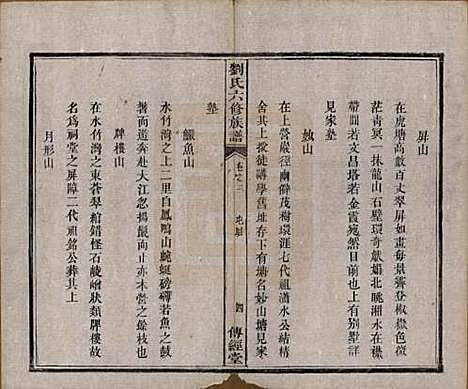 屏山
在虎塘高數百丈翠屏如畫每晨霽登椒嶽色微
茫靑冥一抹龍山石壁環奇獻媚北眺湘水在襟
帶閒若文昌塔若金霞宛然其上有别墅詳
見家塾
𡊮山
在上營巖徑幽僻茂樹環涯七代祖瀟水公結精
舍其上授徒講學舊址存下有塘名妙山塘見家
劉氏六修族譜
卷之三
四
傳經堂
塾
鱖魚山
水竹灣之上二里自鳳鳴山蜿蜒磅礴若魚之鼓
鬐而道奔赴大江忽掉尾向止亦本營之餘枝也
牌樓山
在水竹灣之東蒼翠棺錯怪石崚嶒狀類牌樓故
名爲祠堂之屏障二代祖銘公葬其上
月形山